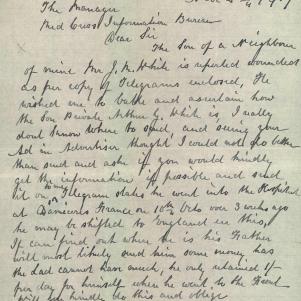 The Manager
Red Cross Information Bureau
Dear Sir
The Son of a Neighbour
of mine Mr J. White is reported wounded
as per copy of Telegrams enclosed, He
wished me to and ascertain how
the Son Private Arthur G. White is, I really
dont know where to send, and seeing your
Ad in Advertiser thought I could not do better
than send and ask if you would kindly
get the information if possible and send
it on Telegram states he went into the Hospital
at France on 10th Octo over 3 weeks ago
he may be shifted to England in this,
If can find out where he is his Father
will most likely send him some money has
the Lad cannot have much, he only retained 1/-
per day for himself when he went to the Front
will you kindly do this and oblige